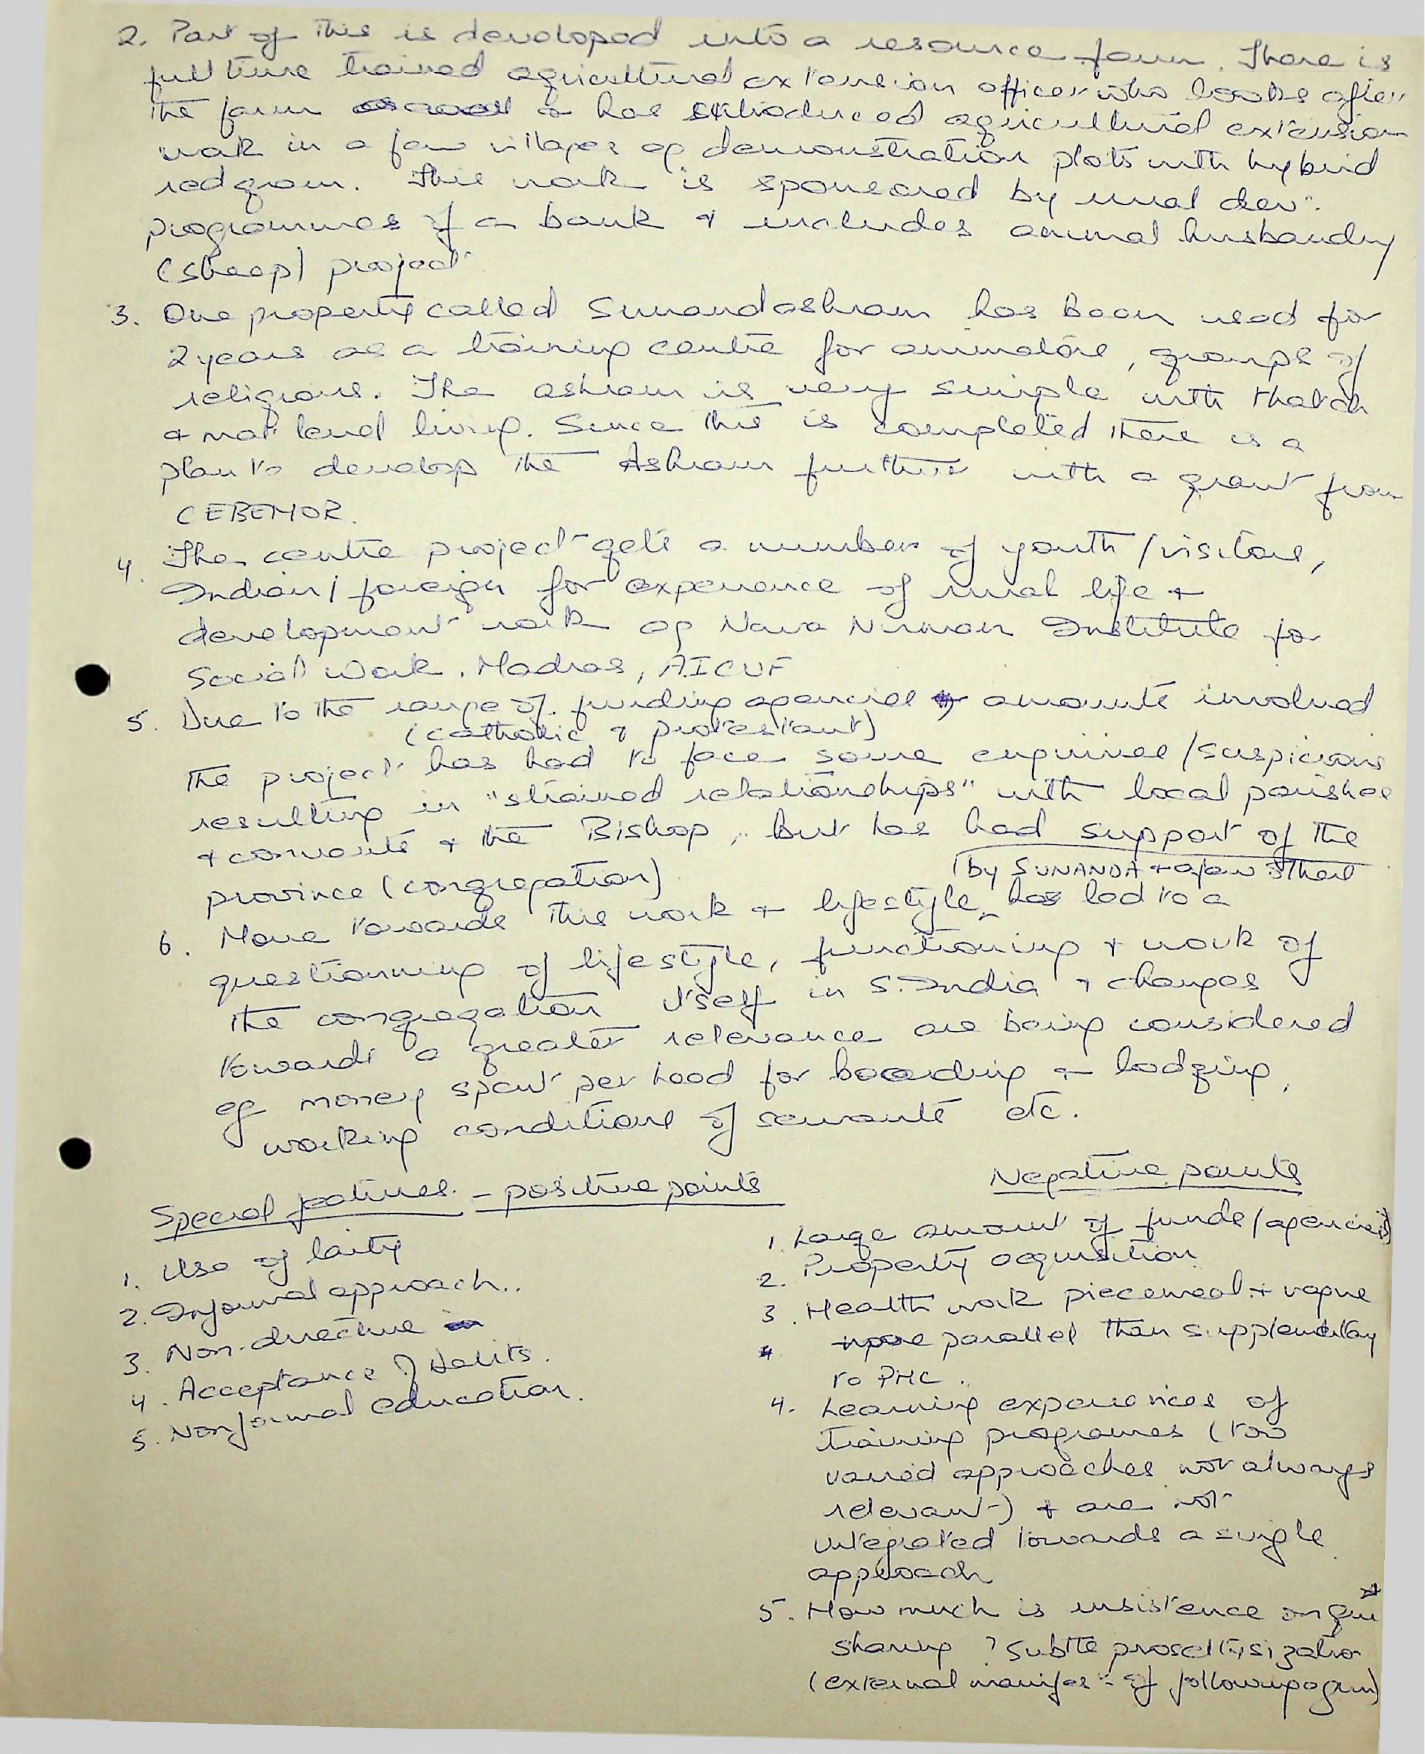 2. Part of this is developed into a resource farm. There is
full time trained agricultural extension officer who looks after
the farm & has introduced agricultural extension
work in a few villages eg demonstration plots with hybrid
redgram. This work is sponsored by rural devt.
programmes of a bank & includes animal husbandry
(sheep) project
3. One property called Sunandashram has been used for
2 years as a training centre for animators, groups of
religious. The ashram is very simple with thatch
& mat level living. Since this is completed there is a
plan to develop the Ashram further with a grant from
CEBEMOR.
4. The centre project gets a number of youth/visitors,
Indian/foreign for experience of rural life &
development work eg Nava Nirman Institute for
Social Work, Madras, AICUF
5. Due to the range of funding agencies amounts involved
(catholic & protestant)
the project has had to face some enquiries/suspicions
resulting in "strained relationships" with local parishes
& convents & the Bishop, but has had support of the
province (congregation)
(by SUNANDA & a few others
6. Move towards this work & lifestyle, has led to a
questioning of lifestyle, functioning & work of
the congregation itself in S. India & changes
towards a greater relevance are being considered
eg money spent per head for boarding & lodging,
working conditions of servants etc.
Special features - positive points
1. Use of laity
2. Informal approach..
3. Non-directive
4. Acceptance of Dalits.
5. Nonformal education.
Negative points
1. Large amount of funds/agencies)
2. Property acquisition
3. Health work piecemeal & vague
more parallel than supplementary
to PHC.
4. Learning experiences of
training programes (too
varied approaches not always
relevant) & are not
integrated towards a single
approach
5. How much is insistence on
sharing ? subtle proseltysization
(external manifes of followup